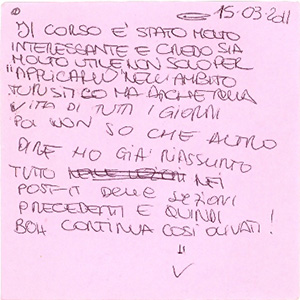 15.03.2011
IL CORSO E' STATO MOLTO
INTERESSANTE E CREDO SIA
MOLTO UTILE NON SOLO PER
"APPLICARLO" NELL'AMBITO
TURISTICO MA ANCHE NELLA
VITA DI TUTTI I GIORNI
POI NON SO CHE ALTRO
DIRE HO GIA' RIASSUNTO
TUTTO NEI
POST-IT DELLE LEZIONI
PRECEDENTI E QUINDI
BOH CONTINUA COSÌ !